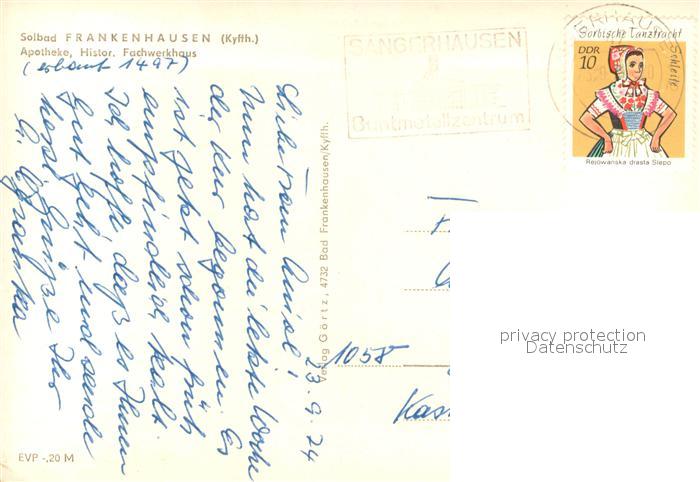 Solbad FRANKENHAUSEN (Kyffh.)
Apotheke, Histor. Fachwerkhaus
(erbaut 1497)
SANGERHAUSEN
Buntmetallzentrum
Sorbische Tanztracht
DDR
10
Schleife
Rejowanska drasta Slepo
23.9.74
Liebe Frau
Nun hat die letzte Woche
der Kur begonnen. Es
ist jetzt schon früh
empfindlich kalt.
Ich hoffe daß es Ihnen
gut geht und sende
herzl. Grüße Ihr
Verlag Görtz, 4732 Bad Frankenhausen/Kyffh.
1058
Kass
privacy protection
Datenschutz
EVP -,20 M